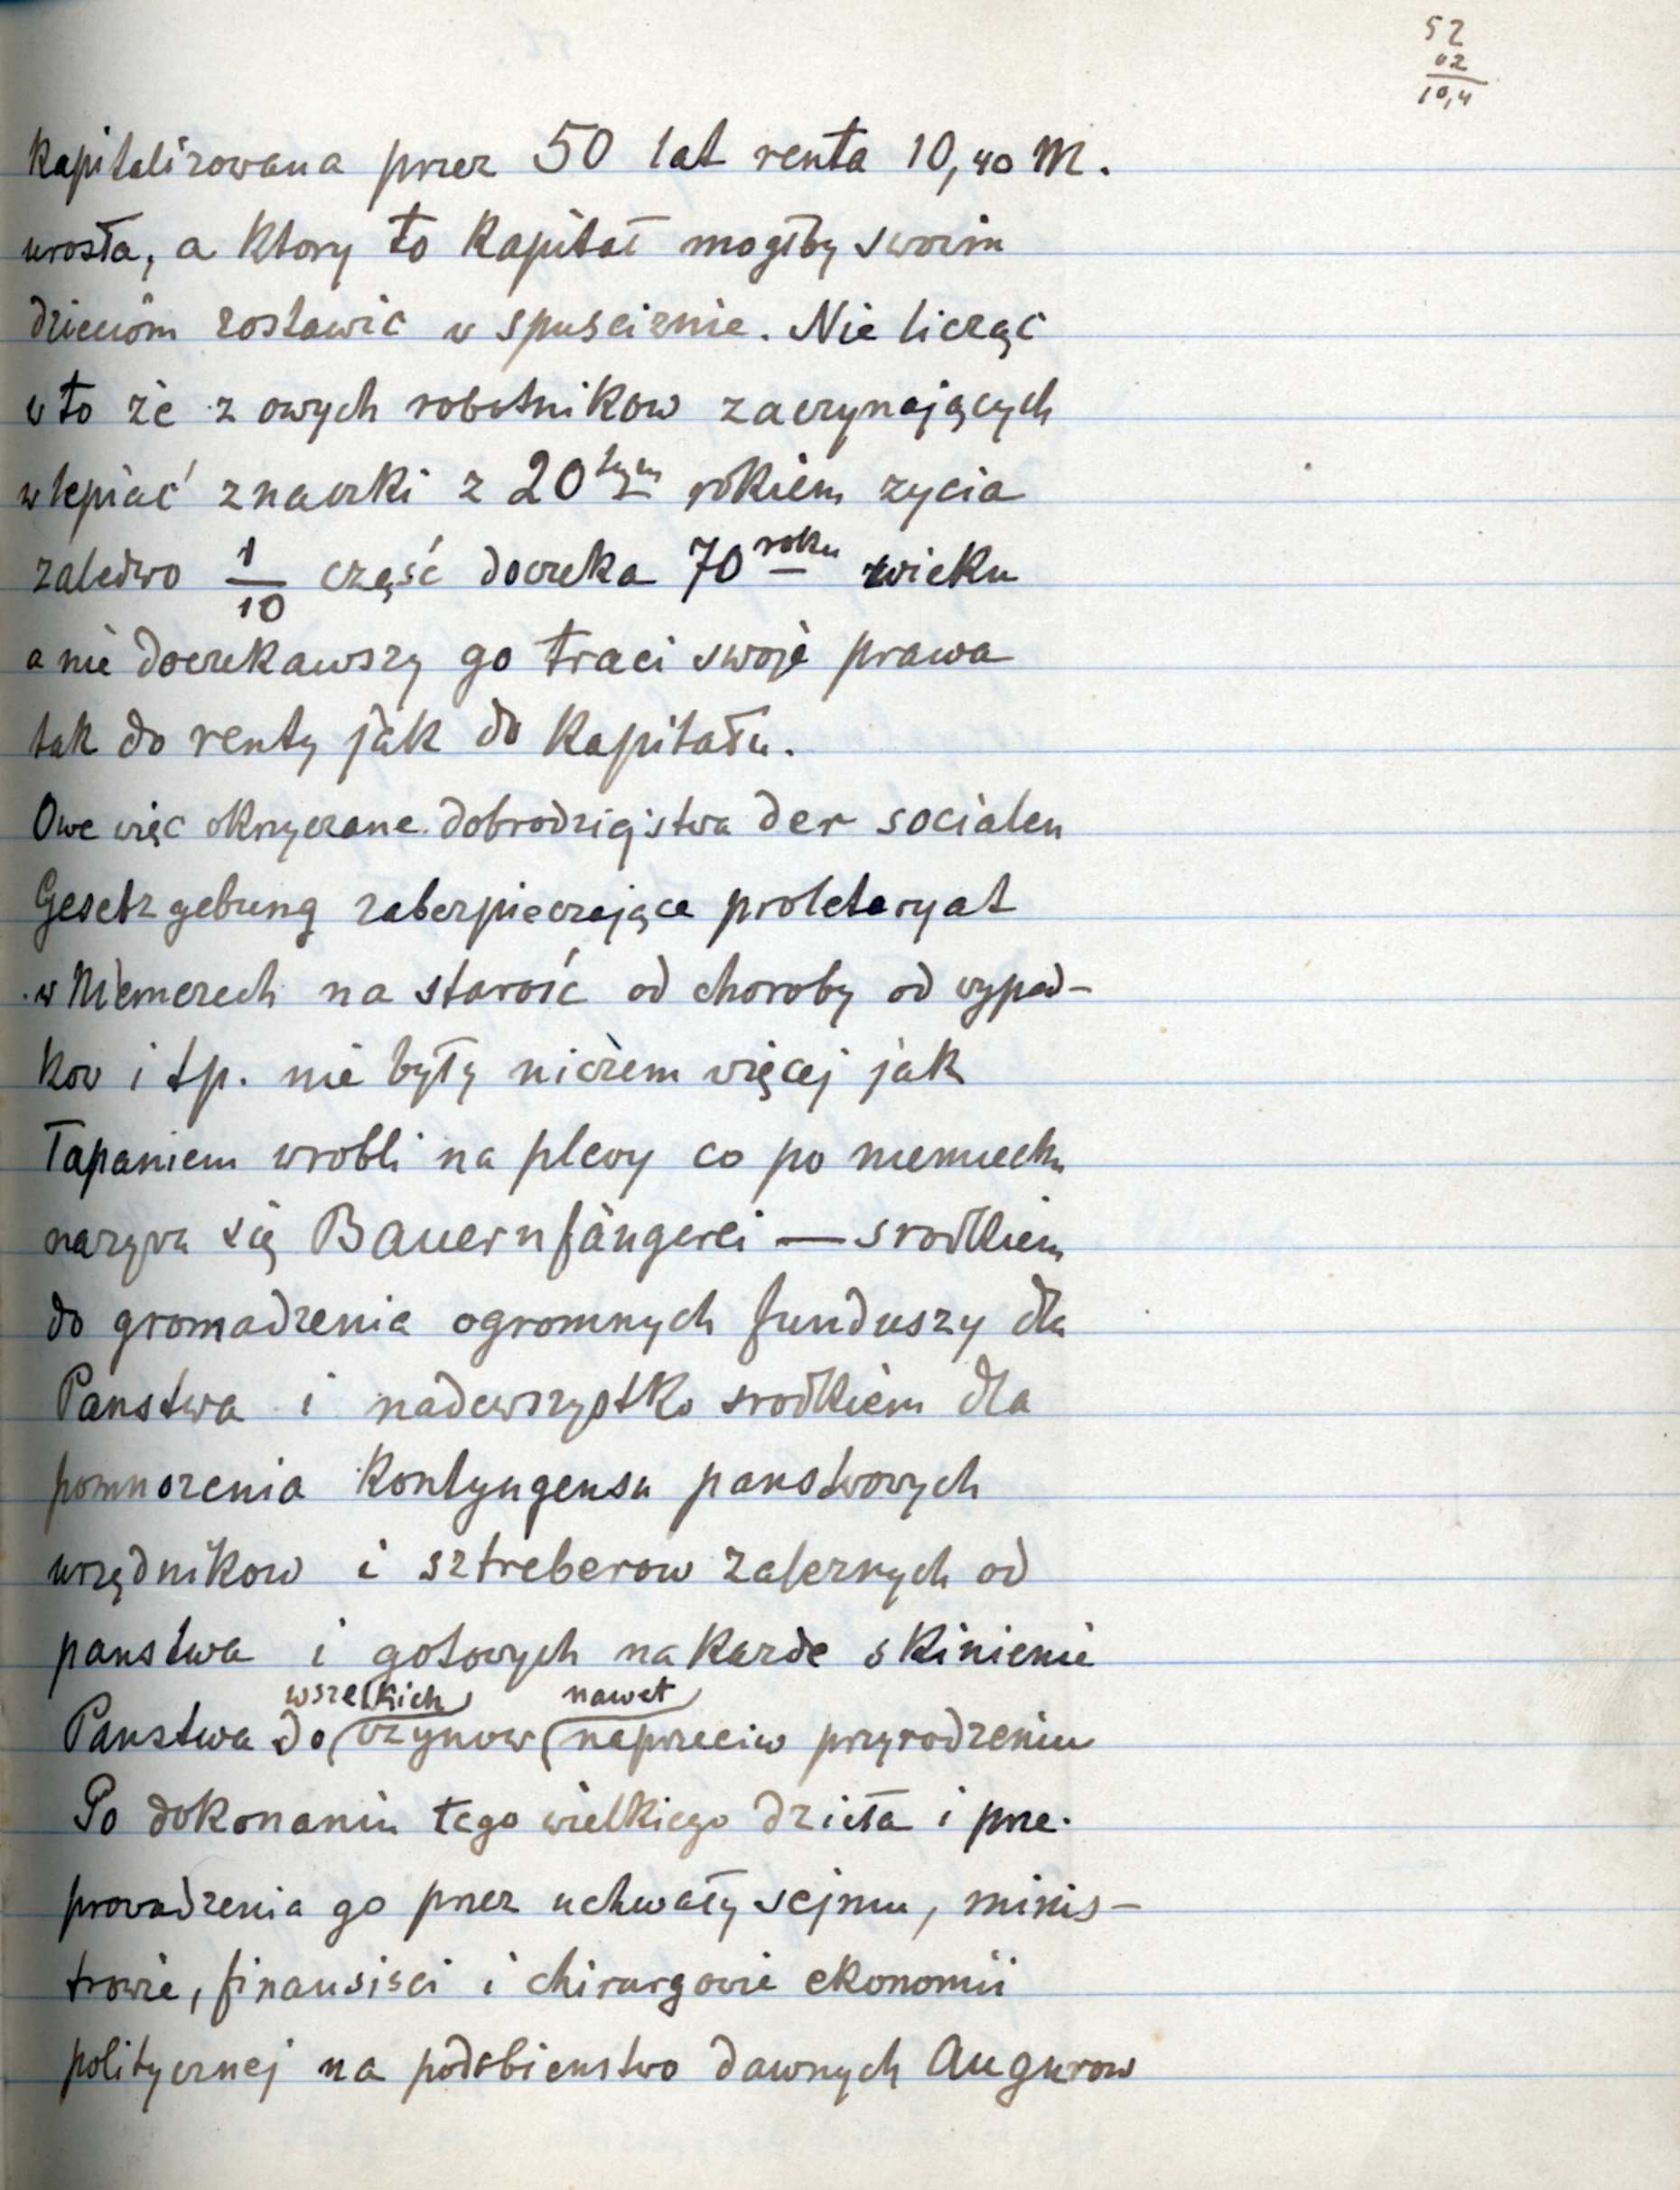 52
02
10,4
Kapitalizowana przez 50 lat renta 10,40 M.
urosła, a ktory to Kapitał mogłby swoim
dzieciôm zostawic w spusciznie. Nie licząc
w to że z owych robotnikow zaczynających
wlepiać znaczki z 20tym rokiem zycia
zaledwo 1/10 część doczeka 70 roku wieku
a nie doczekawszy go traci swoje prawa
tak do renty jak do Kapitału.
Owe więc okrzyczane dobrodziejstwa der socialen
Gesetzgebung zabezpieczające proletaryat
w Niemczech na starośc od choroby od wypad-
kow i tp. nie były niczem więcej jak
łapaniem wrobli na plewy co po niemiecku
nazywa się Bauernfängerei — srodkiem
do gromadzenia ogromnych funduszy dla
Panstwa i nadewszystko srodkiem dla
pomnozenia Kontyngensu panstwowych
urzędnikow i sztreberow zaleznych od
panstwa i gotowych na kazde skinienie
wszelkich nawet
Panstwa do czynow naprzeciw przyrodzeniu
Po dokonaniu tego wielkiego dzieła i prze-
prowadzenia go przez uchwały sejmu, minis-
trowie, finansisci i chirurgowie ekonomii
politycznej na podobienstwo dawnych Augurow